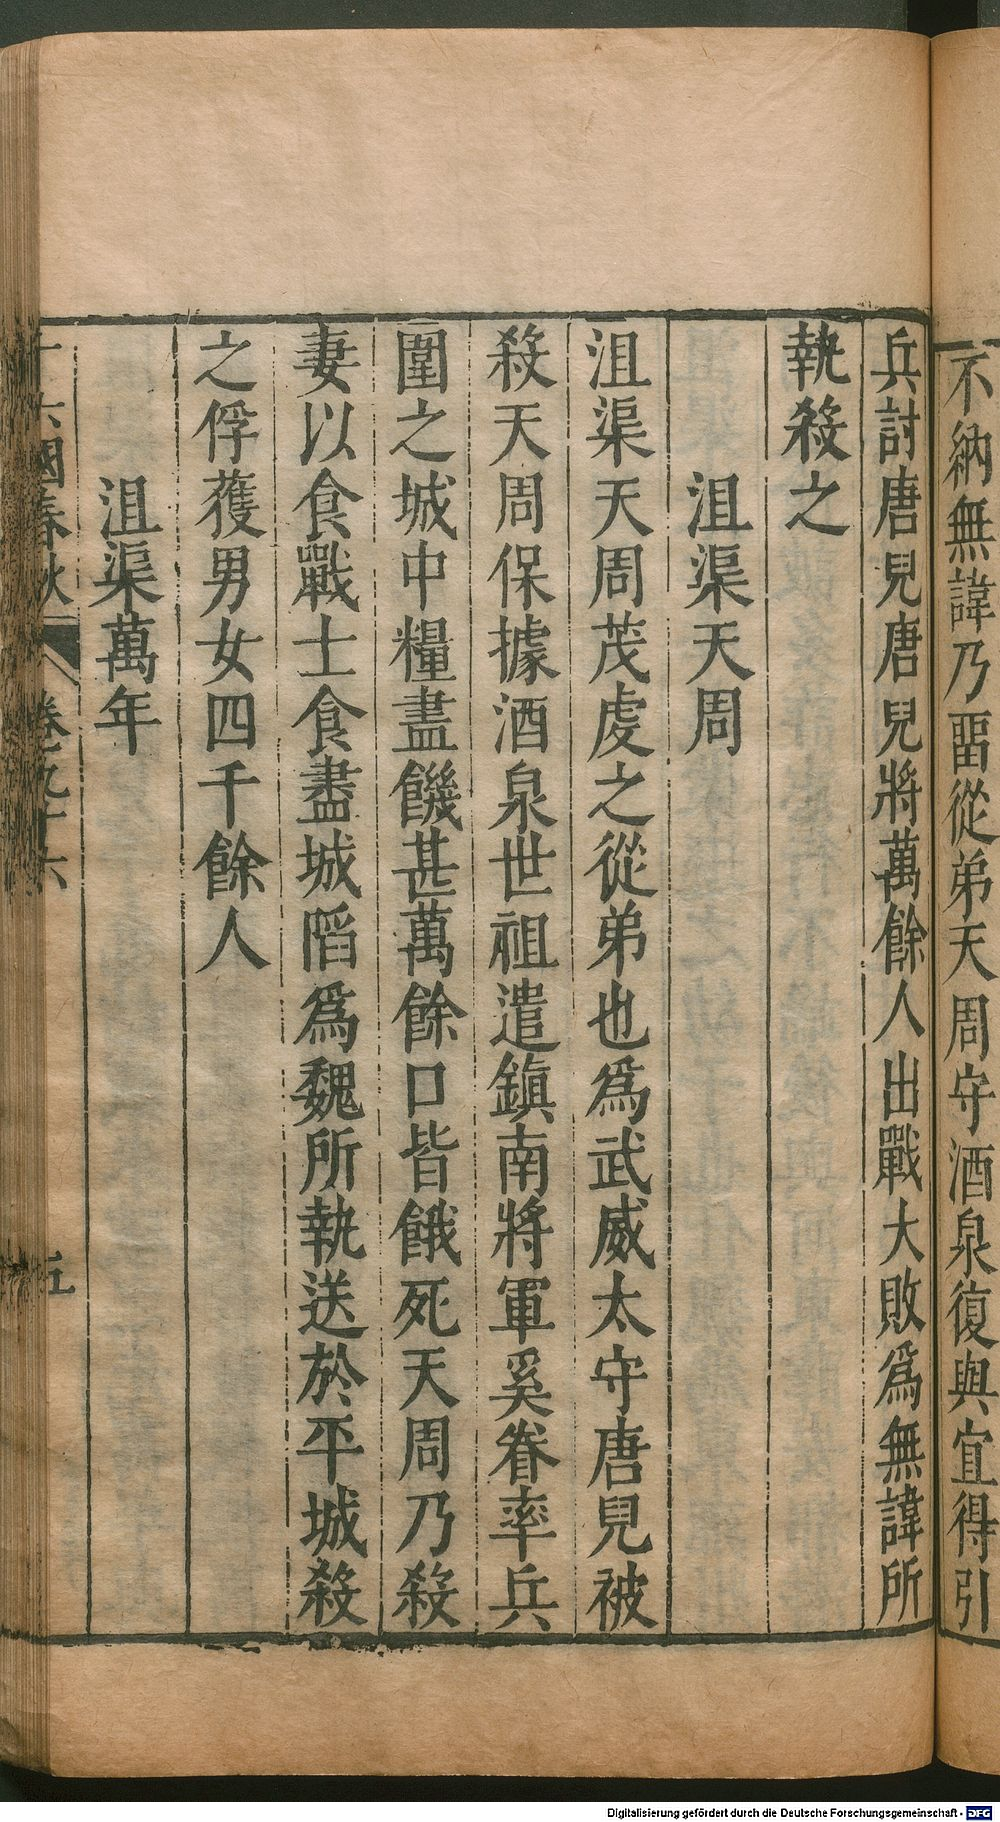 不納無諱乃畱從弟天周守酒泉復與宜得引
兵討唐兒唐兒將萬餘人出戰大敗爲無諱所
執殺之
沮渠天周
沮渠天周茂虔之從弟也爲武威太守唐兒被
殺天周保據酒泉世祖遣鎭南將軍奚眷率兵
圍之城中糧盡饑甚萬餘口皆餓死天周乃殺
妻以食戰士食盡城䧟爲魏所執送於平城殺
之俘獲男女四千餘人
沮渠萬年
十六國春秋 卷九十六 五
Digitalisierung gefördert durch die Deutsche Forschungsgemeinschaft - DFG